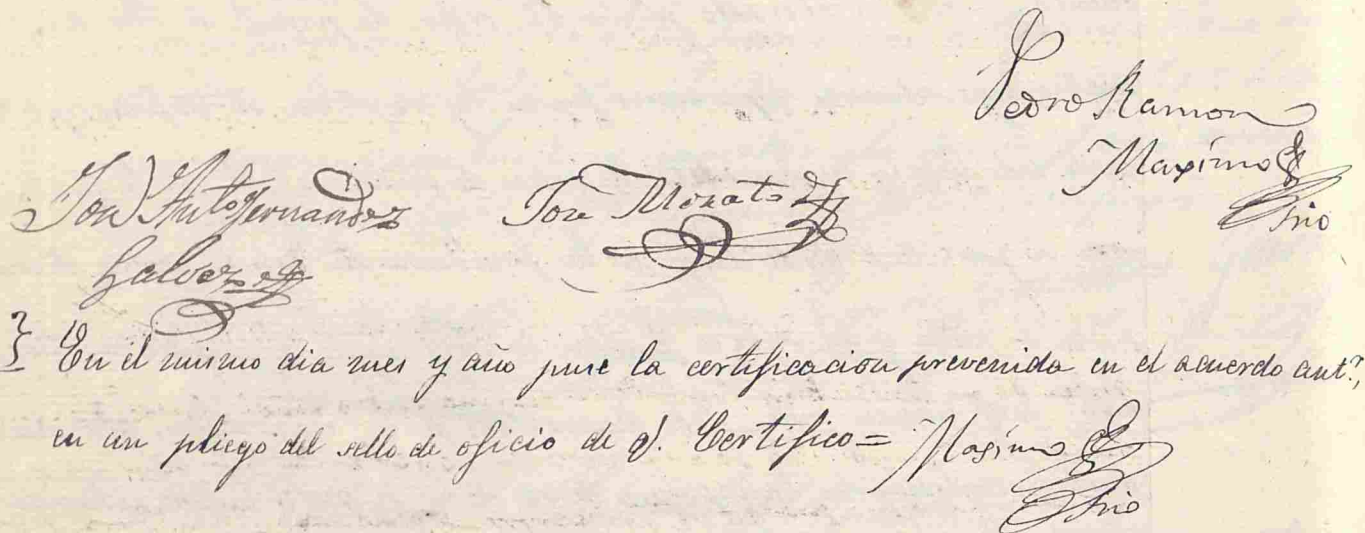 Pedro Ramon
Maximo
Srio
José Anto Fernandez
Galvez
José Morato
En el mismo dia mes y año puse la certificacion prevenida en el acuerdo ant.r,
en un pliego del sello de oficio de q. Certifico = Maximo
Srio